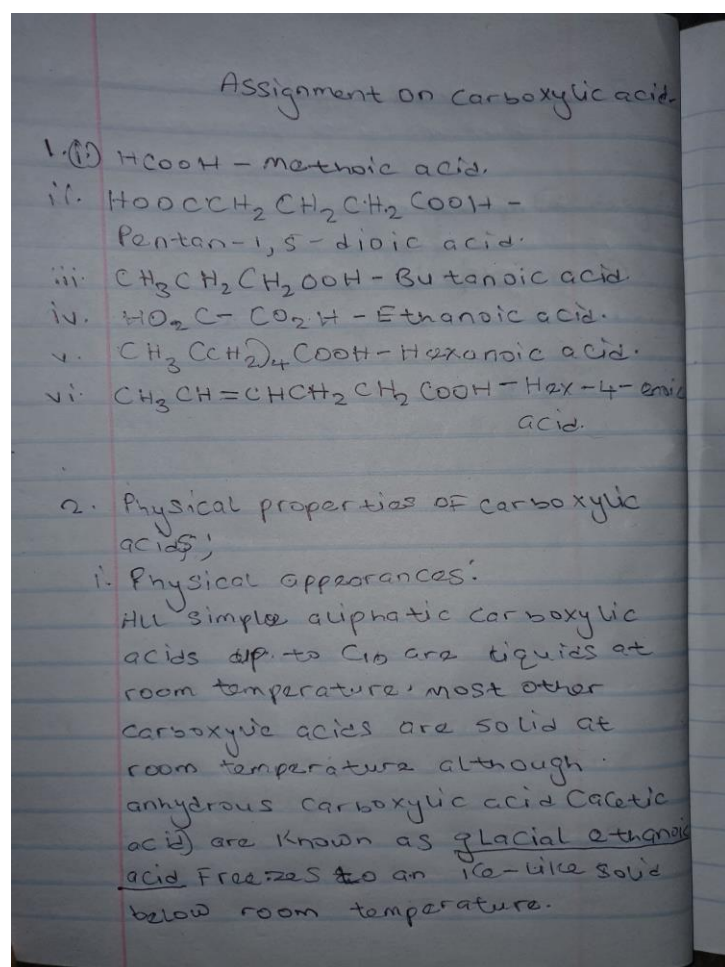 Assignment on carboxylic acid.
1.(i) HCOOH - methoic acid.
ii. HOOCCH2 CH2 CH2 COOH -
Pentan-1,5-dioic acid.
iii. CH3 CH2 CH2 OOH - Butanoic acid
iv. HO2 C - CO2 H - Ethanoic acid.
v. CH3 (CH2)4 COOH - Hexanoic acid.
vi. CH3 CH=CHCH2 CH2 COOH - Hex-4-enoic
acid.
2. Physical properties of carboxylic
acids;
i. Physical appearances:
All simple aliphatic carboxylic
acids up to C10 are liquids at
room temperature, most other
carboxylic acids are solid at
room temperature although
anhydrous carboxylic acid (acetic
acid) are known as glacial ethanoic
acid Freezes to an ice-like solid
below room temperature.